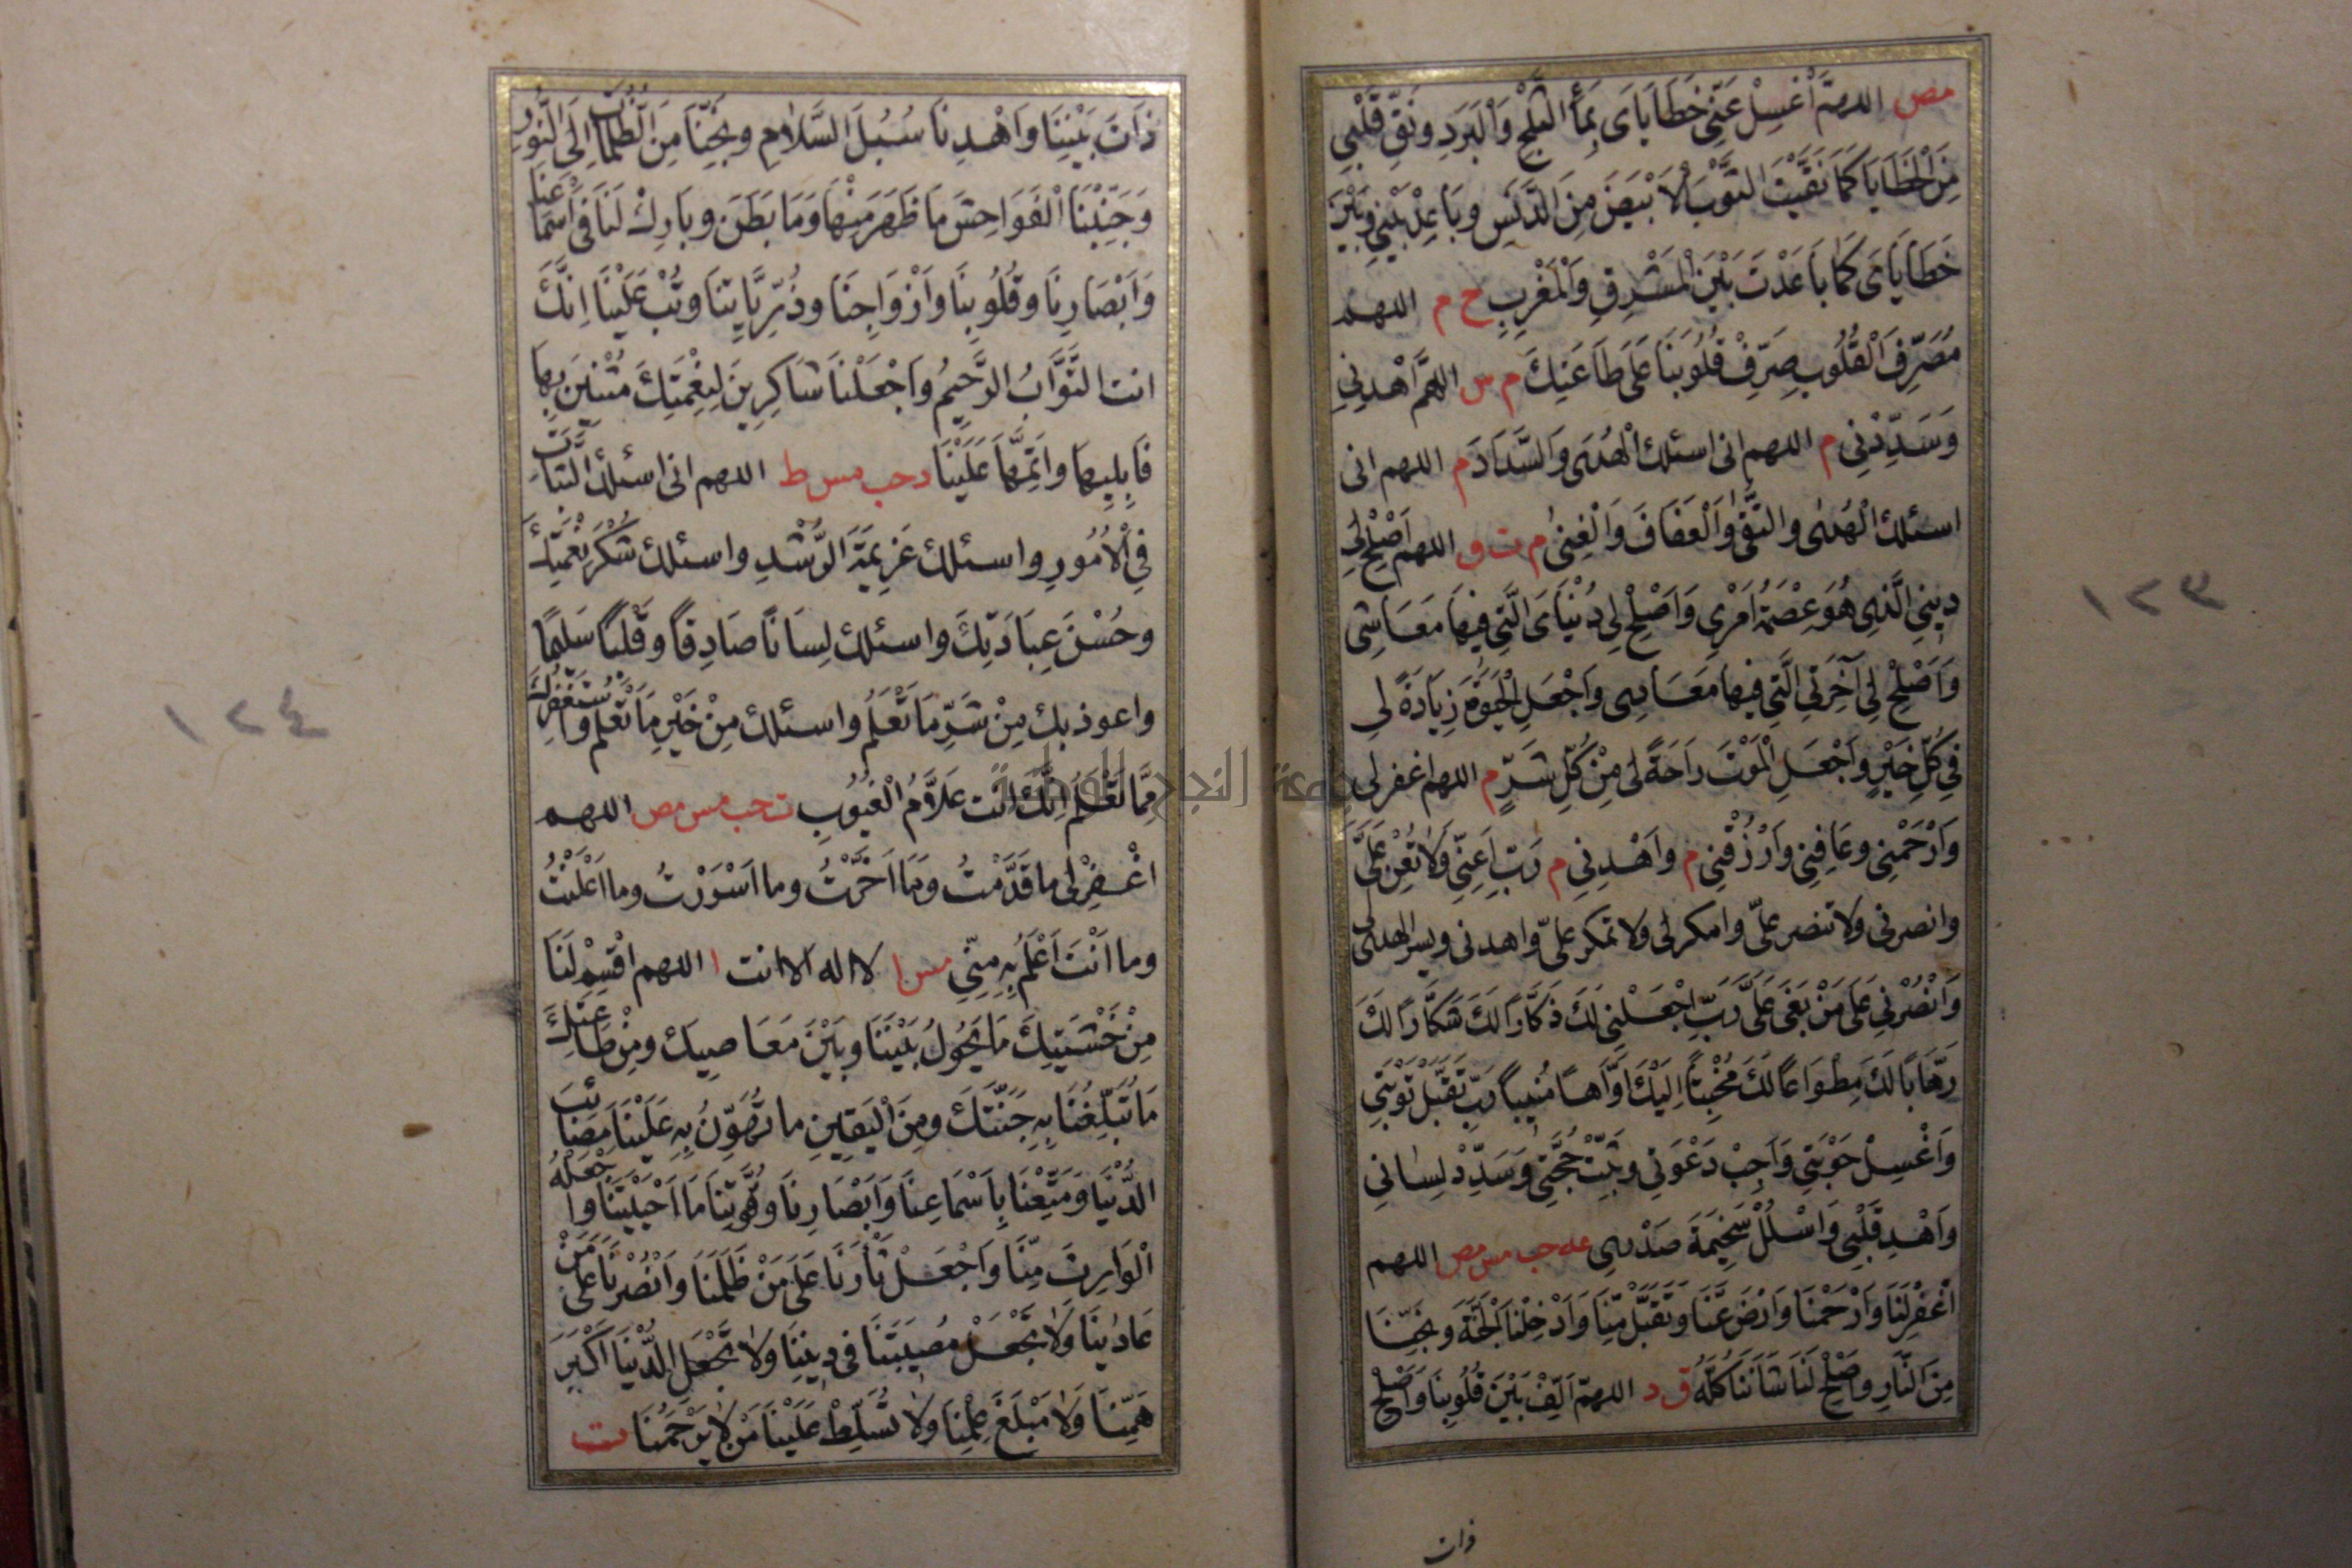 مص اللهمّ اغْسِلْ عَنِّي خَطَايَايَ بِمَاءِ الثَّلْجِ وَالْبَرَدِ وَنَقِّ قَلْبِي
مِنَ الْخَطَايَا كَمَا نَقَّيْتَ الثَّوْبَ الْأَبْيَضَ مِنَ الدَّنَسِ وَبَاعِدْ بَيْنِي وَبَيْنَ
خَطَايَايَ كَمَا بَاعَدْتَ بَيْنَ الْمَشْرِقِ وَالْمَغْرِبِ خ م اللهم
مُصَرِّفَ الْقُلُوبِ صَرِّفْ قُلُوبَنَا عَلَى طَاعَتِكَ م س اللهمَّ اهْدِنِي
وَسَدِّدْنِي م اللهم انى اسئلك الْهُدَى وَالسَّدَادَ م اللهم انى
اسئلك الْهُدٰى وَالتُّقٰى وَالْعَفَافَ وَالْغِنٰى م ت ق اللهم اَصْلِحْ لِي
دِينِيَ الَّذِي هُوَ عِصْمَةُ اَمْرِي وَاَصْلِحْ لِي دُنْيَايَ الَّتِي فِيهَا مَعَاشِي
وَاَصْلِحْ لِي آخِرَتِي الَّتِي فِيهَا مَعَادِي وَاجْعَلِ الْحَيٰوةَ زِيَادَةً لِي
فِي كُلِّ خَيْرٍ وَاجْعَلِ الْمَوْتَ رَاحَةً لِي مِنْ كُلِّ شَرٍّ م اللهم اغفر لى
وَارْحَمْنِي وَعَافِنِي وَارْزُقْنِي م وَاهْدِنِي م رَبِّ اَعِنِّي وَلَا تُعِنْ عَلَيَّ
وانصرنى ولا تنصر علىّ وامكر لى ولا تمكر علىّ واهدنى ويسر الهدى لى
وَانْصُرْنِي عَلَى مَنْ بَغَى عَلَيَّ رَبِّ اجْعَلْنِي لَكَ ذَكَّارًا لَكَ شَكَّارًا لَكَ
رَهَّابًا لَكَ مِطْوَاعًا لَكَ مُخْبِتًا اِلَيْكَ اَوَّاهًا مُنِيبًا رَبِّ تَقَبَّلْ تَوْبَتِي
وَاغْسِلْ حَوْبَتِي وَاَجِبْ دَعْوَتِي وَثَبِّتْ حُجَّتِي وَسَدِّدْ لِسَانِي
وَاهْدِ قَلْبِي وَاسْلُلْ سَخِيمَةَ صَدْرِي عه حب مس مص اللهم
اغْفِرْ لَنَا وَارْحَمْنَا وَارْضَ عَنَّا وَتَقَبَّلْ مِنَّا وَاَدْخِلْنَا الْجَنَّةَ وَنَجِّنَا
مِنَ النَّارِ وَاَصْلِحْ لَنَا شَأْنَنَا كُلَّهُ ق د اللهمّ اَلِّفْ بَيْنَ قُلُوبِنَا وَاَصْلِحْ
ذات
١٢٣
ذَاتَ بَيْنِنَا وَاهْدِنَا سُبُلَ السَّلَامِ وَنَجِّنَا مِنَ الظُّلُمَاتِ اِلَى النُّورِ
وَجَنِّبْنَا الْفَوَاحِشَ مَا ظَهَرَ مِنْهَا وَمَا بَطَنَ وَبَارِكْ لَنَا فِي اَسْمَاعِنَا
وَاَبْصَارِنَا وَقُلُوبِنَا وَاَزْوَاجِنَا وَذُرِّيَّاتِنَا وَتُبْ عَلَيْنَا اِنَّكَ
انت التَّوَّابُ الرَّحِيمُ وَاجْعَلْنَا شَاكِرِينَ لِنِعْمَتِكَ مُثْنِينَ بِهَا
قَابِلِيهَا وَاَتِمَّهَا عَلَيْنَا د حب مس ط اللهم انى اسئلك الثَّبَاتَ
فِي الْاُمُورِ واسئلك عَزِيمَةَ الرُّشْدِ واسئلك شُكْرَ نِعْمَتِكَ
وَحُسْنَ عِبَادَتِكَ واسئلك لِسَانًا صَادِقًا وَقَلْبًا سَلِيمًا
واعوذ بك مِنْ شَرِّ مَا تَعْلَمُ واسئلك مِنْ خَيْرِ مَا تَعْلَمُ وَاَسْتَغْفِرُكَ
مِمَّا تَعْلَمُ اِنَّكَ اَنْتَ عَلَّامُ الْغُيُوبِ ت حب مس مص اللهم
اغْفِرْ لِي مَا قَدَّمْتُ وَمَا اَخَّرْتُ وما اَسْرَرْتُ وما اَعْلَنْتُ
وما اَنْتَ اَعْلَمُ بِهِ مِنِّي مس ا لا اله الا انت ا اللهم اقْسِمْ لَنَا
مِنْ خَشْيَتِكَ مَا يَحُولُ بَيْنَنَا وَبَيْنَ مَعَاصِيكَ وَمِنْ طَاعَتِكَ
مَا تُبَلِّغُنَا بِهِ جَنَّتَكَ وَمِنَ الْيَقِينِ مَا تُهَوِّنُ بِهِ عَلَيْنَا مَصَائِبَ
الدُّنْيَا وَمَتِّعْنَا بِاَسْمَاعِنَا وَاَبْصَارِنَا وَقُوَّتِنَا مَا اَحْيَيْتَنَا وَاجْعَلْهُ
الْوَارِثَ مِنَّا وَاجْعَلْ ثَأْرَنَا عَلَى مَنْ ظَلَمَنَا وَانْصُرْنَا عَلَى مَنْ
عَادَانَا وَلَا تَجْعَلْ مُصِيبَتَنَا فِي دِينِنَا وَلَا تَجْعَلِ الدُّنْيَا اَكْبَرَ
هَمِّنَا وَلَا مَبْلَغَ عِلْمِنَا وَلَا تُسَلِّطْ عَلَيْنَا مَنْ لَا يَرْحَمُنَا ت
١٢٤
جامعة النجاح الوطنية